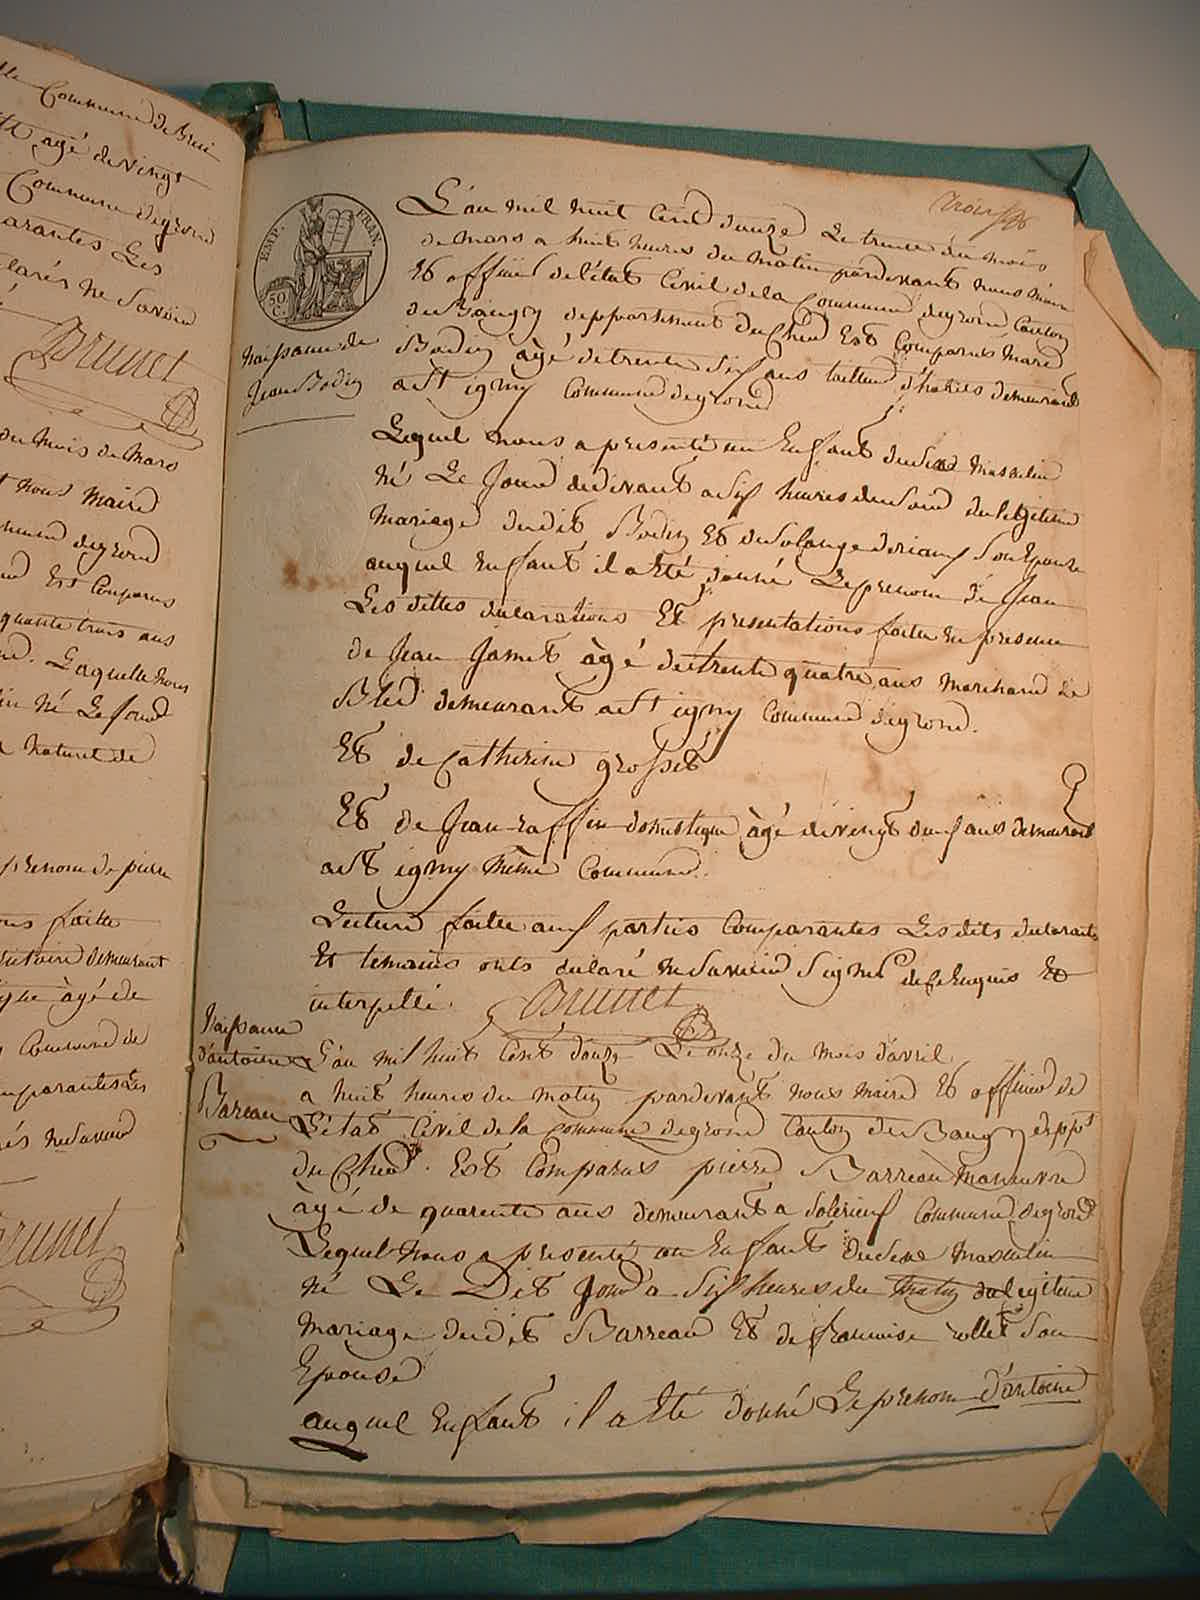 Commune de
âgé de vingt
Commune degrond
arantes Les
clarés ne Savoir
Brunet
du mois de Mars
nous Maire
degrond
Est Comparus
quante trois ans
Laquelle nous
né Le jour
naturel de
prenom de pierre
faitte
demeurant
âgé de
Commune de
mparantes Les
ne savoir
Brunet
EMP. FRAN.
50 C.
naissance de
Jean Bodin
L'an mil huit Cent douze Le trente du mois
de Mars a huit heures du matin pardevant nous Maire
Et officier de l'état Civil de la Commune degrond Canton
de Baugy deppartement du Cher Est Comparus
Bodin âgé de trente Six ans tailleur d'habits demeurant
a St igny Commune degrond
Lequel nous a presenté un Enfant du Sexe Masculin
né Le Jour a Six heures du Soir du legitime
Mariage du dit Bodin Et de Solange Son Epouse
auquel Enfant il a Eté donné Le prenom de Jean
Les dittes déclarations Et presentations faitte En presence
de Jean Jamet âgé de trente quatre ans Marchand de
Bled demeurant a St igny Commune degrond.
Et de Catherine grosset
Et de Jean raffin domestique âgé de vingt deux ans demeurant
a St igny même Commune.
Lecture faitte aux parties Comparantes Les dits declarants
Et temoins onts déclaré ne Savoir Signer de Ce Enquis Et
interpellé. Brunet
Naissance
d'antoine
Bareau
L'an mil huit Cent douze Le onze du mois d'avril
a huit heures du matin pardevant nous Maire Et officier de
L'état Civil de la Commune degrond Canton de Baugy deppt
du Cher. Est Comparus pierre Barreau Maneuvre
âgé de quarente ans demeurant a Solerieux Commune degrond
Lequel nous a presenté un Enfant du Sexe Masculin
né Le Dit Jour a Six heures du Matin du legitime
Mariage du dit Barreau Et de francoise rollet Son
Epouse
auquel Enfant il a Eté donné Le prenom d'antoine